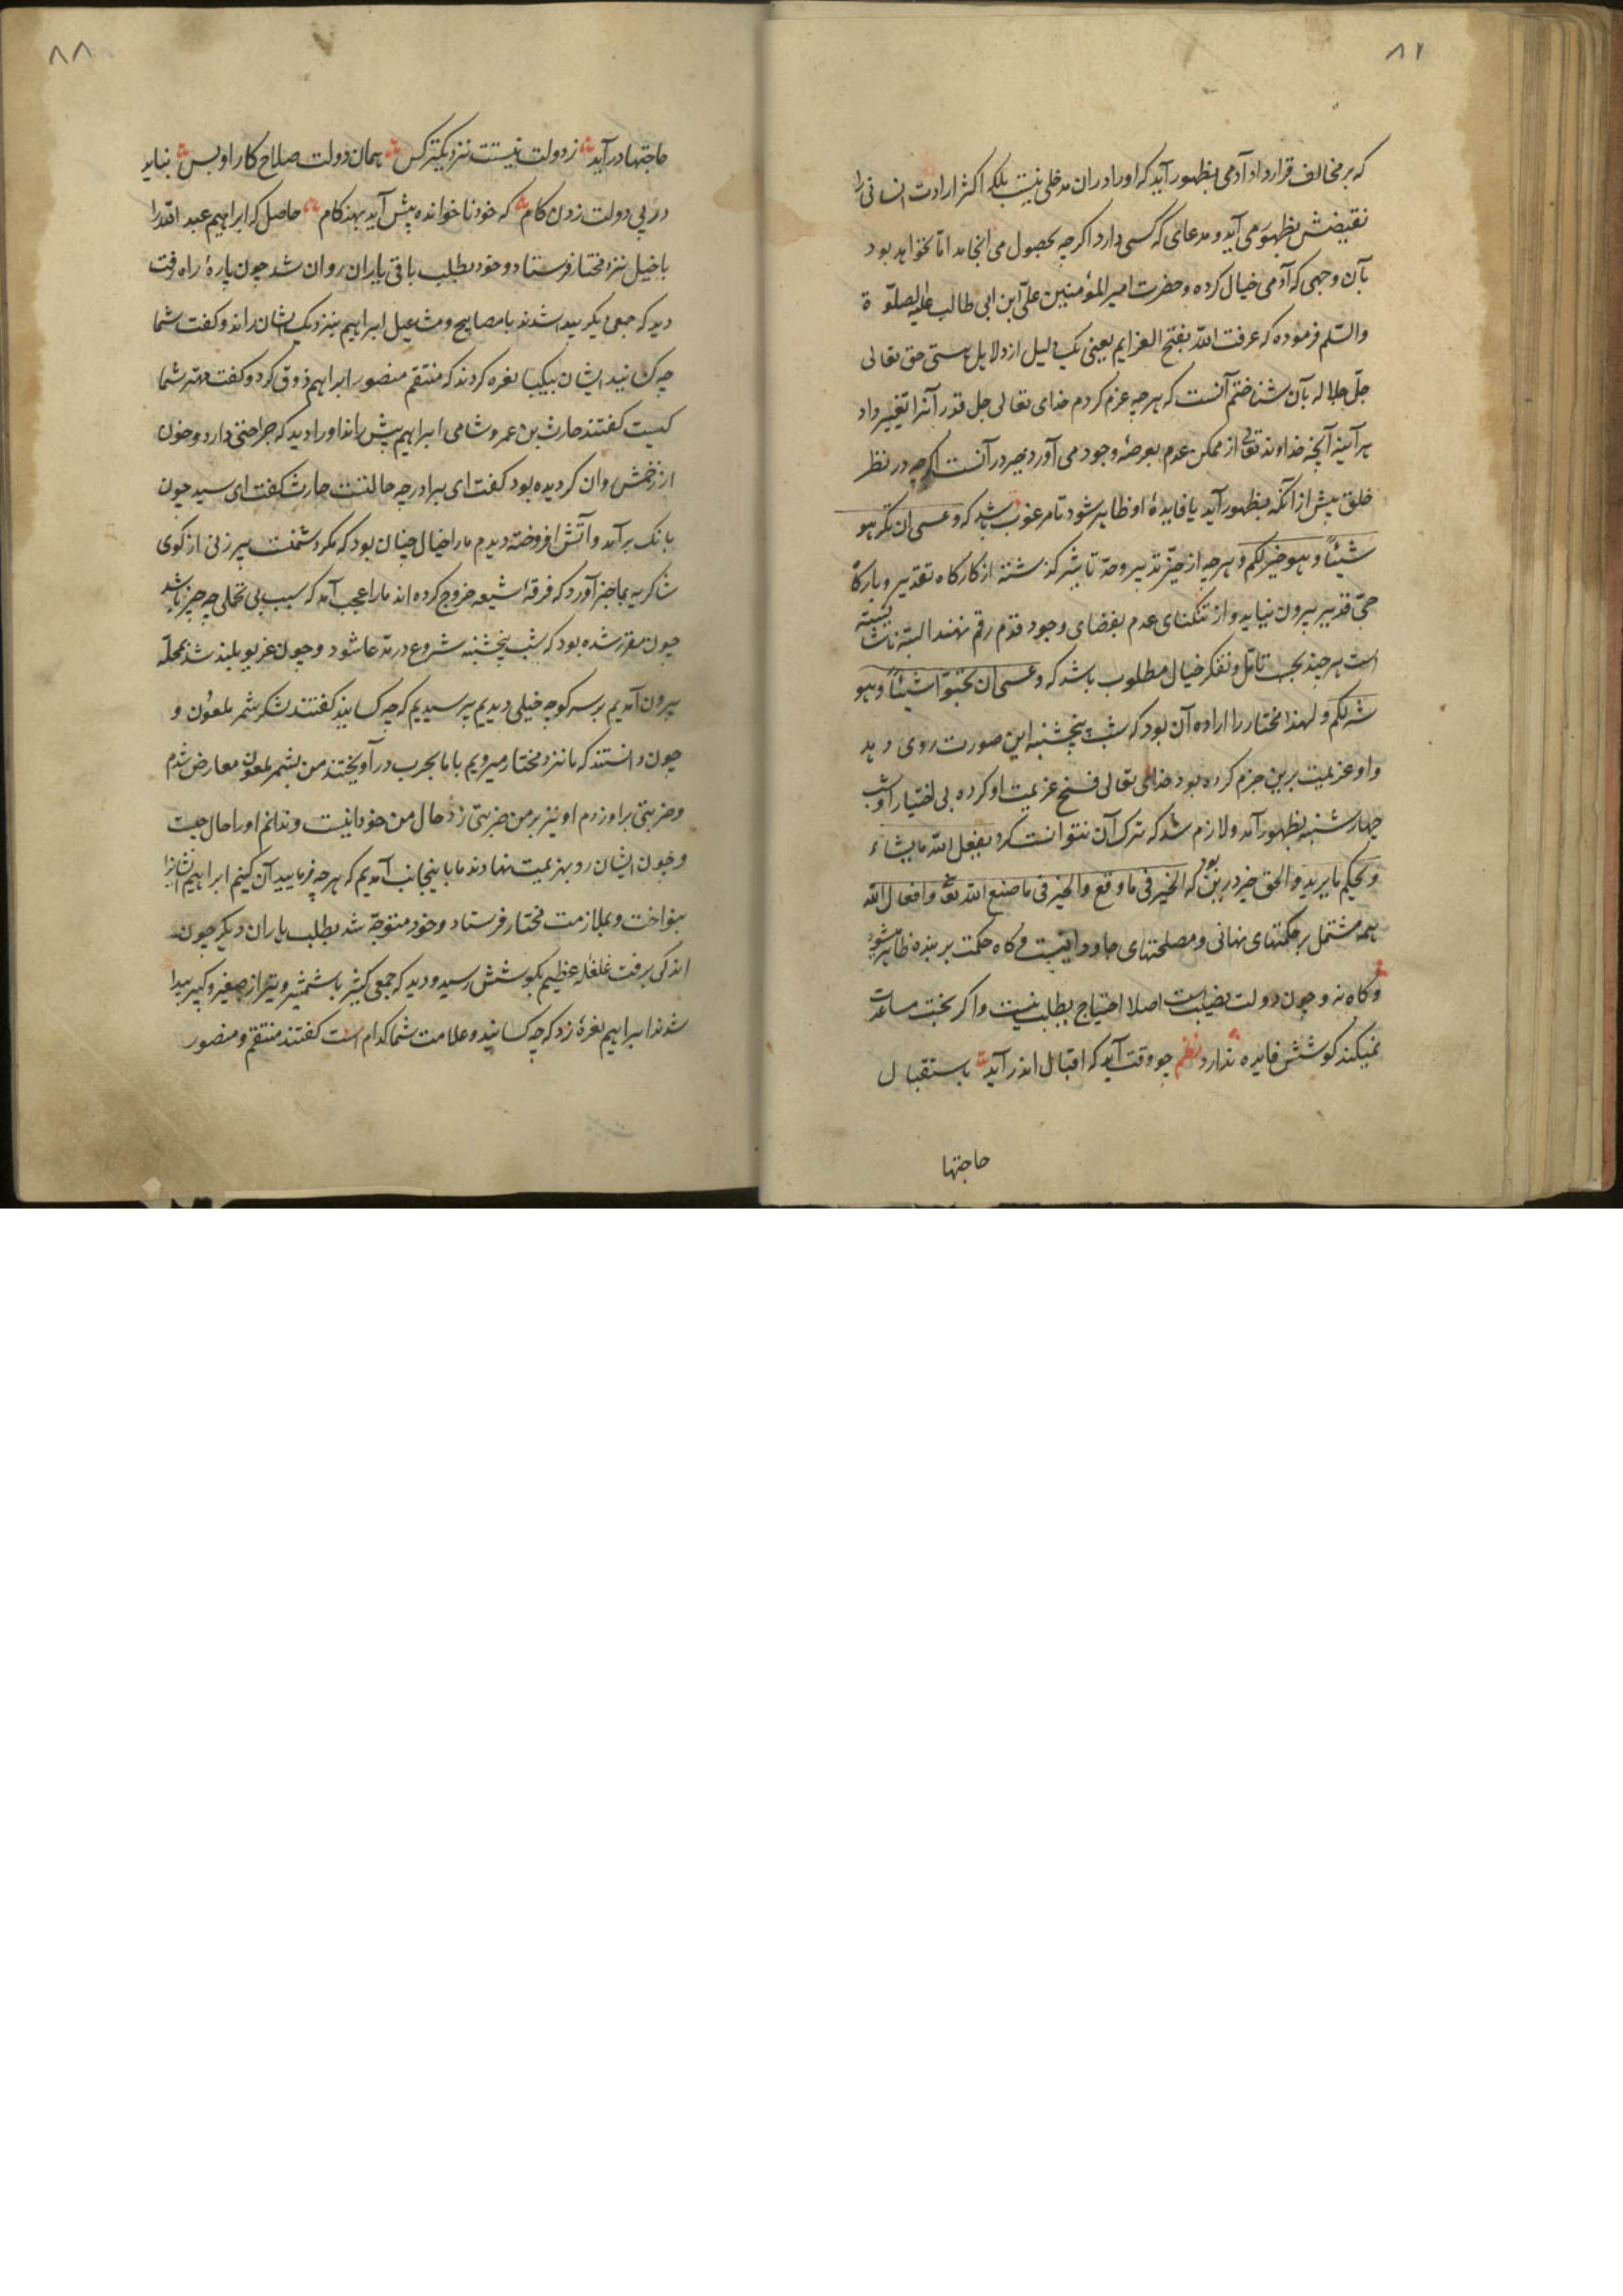 ۸۲
که بر مخالف قرارداد آدمی بظهور آید که او را در ان مدخلی نیست بلکه اکثر ارادت انسانی را
نقیضش بظهور می آید و مدعای که کسی دارد اکرچه بحصول می انجامد اما نخواهد بود
بآن وجهی که آدمی خیال کرده و حضرت امیر المؤمنین علی ابن ابی طالب علیه الصلوة
والسلم فرموده که عرفت الله بفتح العزایم یعنی یک دلیل از دلایل هستی حق تعالی
جل جلاله بآن شناختم آنست که هرچه عزم کردم خدای تعالی جل قدر آنرا تغییر داد
هر آینه آنچه خداوند تعالی از ممکن عدم بعرصهٔ وجود می آورد خیر در آنست اکرچه در نظر
خلق پیش از آنکه بظهور آید یا فایدهٔ او ظاهر شود نامرغوب باشد که و عسی ان تکرهو
شیئاً و هو خیر لکم و هرچه از حیّز تدبیر و حدّ تا بشر کذشته از کارکاه تقدیر و بارکاه
حیّ قدیر بیرون نیاید و از تنکنای عدم بفضای وجود قدم رقم نهند البته ناشایسته
است هرچند بحسب تامّل و تفکر خیال مطلوب باشد که و عسی ان تحبّوا شیئاً و هو
شر لکم و لهذا مختار را اراده آن بود که شب پنجشنبه این صورت روی دهد
و او عزیمت برین جزم کرده بود خدای تعالی فسخ عزیمت او کرده بی اختیار او شب
چهارشنبه بظهور آمد و لازم شد که ترک آن نتوانست کرد یفعل الله ما یشاء
و یحکم ما یرید و الحق خیر درین بود که الخیر فی ما وقع والخیر فی ما صنع الله تعا و افعال الله
همه مشتمل بر حکمتهای نهانی و مصلحتهای جاودانیست و کاه حکمت بر بنده ظاهر میشود
و کاه نه و چون دولت نصیبست اصلا احتیاج بطلب نیست و اکر بخت مساعدت
نمیکند کوشش فایده ندارد نظم چو وقت آید که اقبال اندر آید باستقبال
حاجتها
۸۸
حاجتها در آید ز دولت نیست نزدیکتر کس همان دولت صلاح کار او بس نباید
در پی دولت زدن کام که خود ناخوانده پیش آید بهنکام حاصل که ابراهیم عبد الله را
با خیل نزد مختار فرستاد و خود بطلب باقی یاران روان شد چون پارهٔ راه رفت
دید که جمعی دیکر پیدا شدند با مصابیح و مشاعیل ابراهیم بنزدیک ایشان راند و کفت شما
چه کسانید ایشان بیکبار نعره کردند که منتقم منصور ابراهیم ذوق کرد و کفت مهتر شما
کیست کفتند حارث بن عمرو شامی ابراهیم پیش راند او را دید که جراحتی دارد و خون
از زخمش روان کردیده بود کفت ای برادر چه حالتست حارث کفت ای سید چون
بانک برآمد و آتش افروخته دیدم ما را خیال چنان بود که مکر دشمنست پیرزنی از کوی
شاکریه بما خبر آورد که فرقهٔ شیعه خروج کرده اند ما را عجب آمد که سبب بی تحملی چه چیز باشد
چون مقرر شده بود که شب پنجشنبه شروع در مدعا شود و چون غریو بلند شد بمحلّه
بیرون آمدیم بر سر کوچه خیلی دیدیم پرسیدیم که چه کسانیند کفتند لشکر شمر ملعون و
چون دانستند که ما نزد مختار میرویم با ما بحرب درآویختند من بشمر ملعون معارض شدم
و ضربتی بر او زدم او نیز بر من ضربتی زد حال من خود اینست و ندانم او را حال چیست
و چون ایشان رو بهزیمت نهادند ما باینجانب آمدیم که هرچه فرمایید آن کنیم ابراهیم ایشانرا
بنواخت و بملازمت مختار فرستاد و خود متوجّه شد بطلب یاران دیکر چون
اندکی برفت غلغله عظیم بکوشش رسید و دید که جمعی کثیر با شمشیر و تیر از صغیر و کبیر پیدا
شدند ابراهیم نعرهٔ زد که چه کسانید و علامت شما کدام است کفتند منتقم و منصور